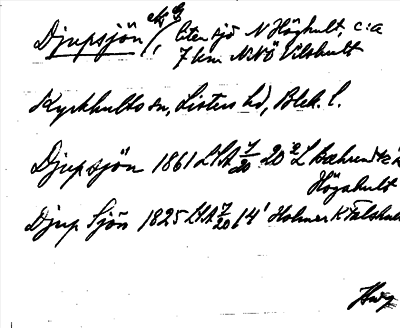 Djupsjön, liten sjö N Höghult, c:a
7 km NNÖ Vilshult
Kyrkhults sn, Listers hd, Blek. l.
Djupsjön 1861 LSA 7/20 20
Högahult
Djup Sjön 1825 LSA 7/20 14' Holmer K